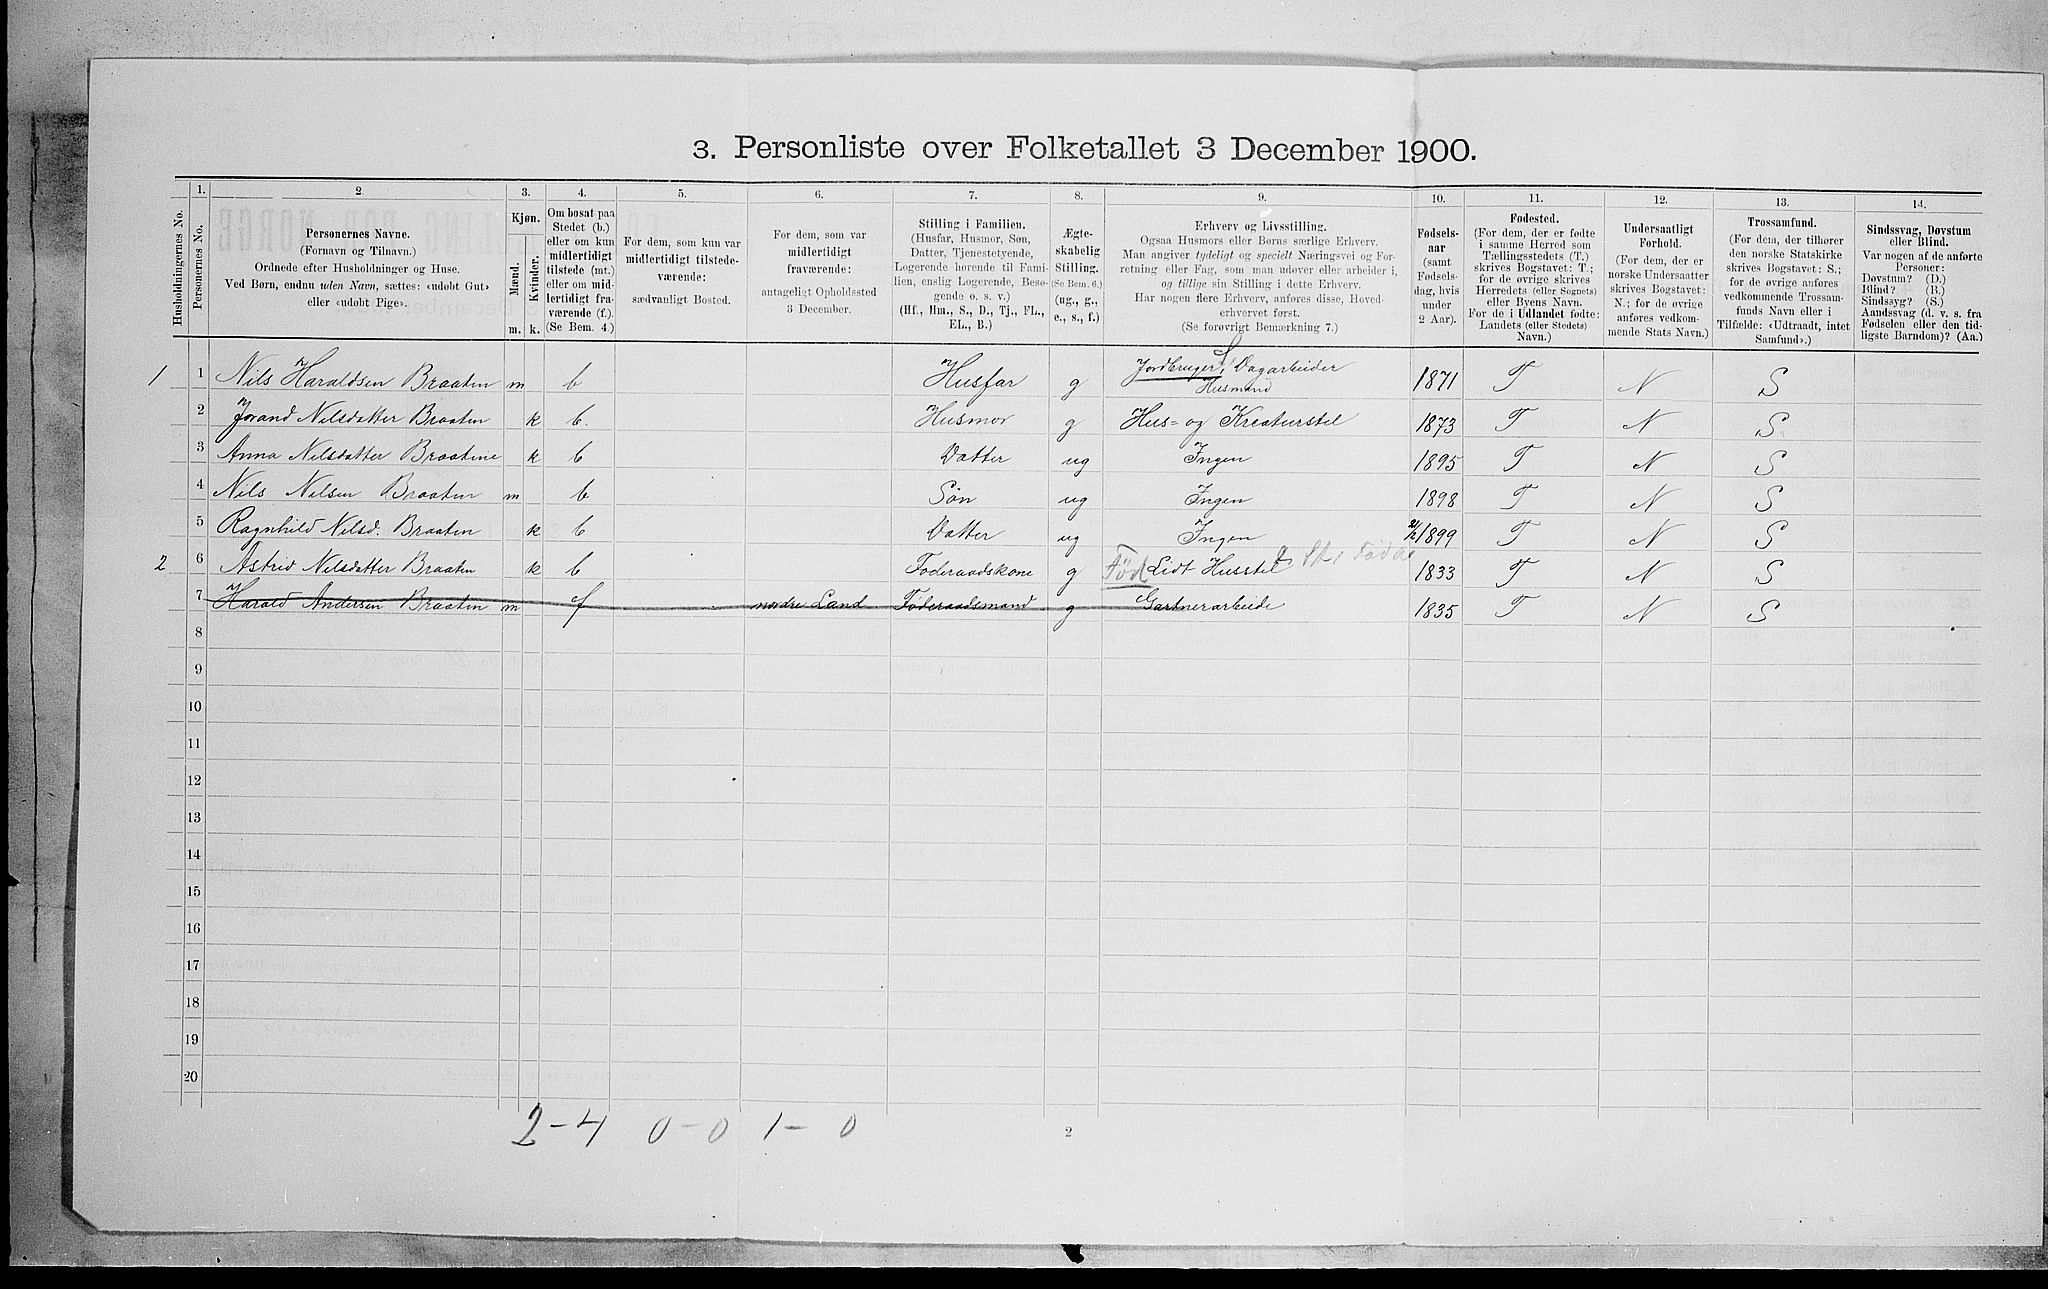 3. Personliste over Folketallet 3 December 1900.
Husholdningernes No.
1.
Personernes No.
2.
Personernes Navne.
(Fornavn og Tilnavn.)
Ordnede efter Husholdninger og Huse.
Ved Børn, endnu uden Navn, sættes: «udøbt Gut»
eller «udøbt Pige».
3.
Kjøn.
Mænd.
Kvinder.
m.
k.
4.
Om bosat paa
Stedet (b.)
eller om kun
midlertidigt
tilstede (mt.)
eller om mid-
lertidigt fra-
værende (f.).
(Se Bem. 4.)
5.
For dem, som kun var
midlertidigt tilstede-
værende:
sædvanligt Bosted.
6.
For dem, som var
midlertidigt
fraværende:
antageligt Opholdssted
3 December.
7.
Stilling i Familien.
(Husfar, Husmor, Søn,
Datter, Tjenestetyende,
Logerende hørende til Fami-
lien, enslig Logerende, Besø-
gende o. s. v.)
(Hf., Hm., S., D., Tj., FL.,
EL., B.)
8.
Ægte-
skabelig
Stilling.
(Se Bem. 6.)
(ug., g.,
e., s., f.)
9.
Erhverv og Livsstilling.
Ogsaa Husmors eller Børns særlige Erhverv.
Man angiver tydeligt og specielt Næringsvei og For-
retning eller Fag, som man udøver eller arbeider i,
og tillige sin Stilling i dette Erhverv.
Har nogen flere Erhverv, anføres disse, Hoved-
erhvervet først.
(Se forøvrigt Bemærkning 7.)
10.
Fødsels-
aar
(samt
Fødsels-
dag, hvis
under
2 Aar).
11.
Fødested.
(For dem, der er fødte
i samme Herred som
Tællingsstedets (T.)
skrives Bogstavet: T.;
for de øvrige skrives
Herredets (eller Sognets)
eller Byens Navn.
For de i Udlandet fødte:
Landets (eller Stedets)
Navn.)
12.
Undersaatligt
Forhold.
(For dem, der er
norske Undersaatter
skrives Bogstavet:
N.; for de øvrige
anføres vedkom-
mende Stats Navn.)
13.
Trossamfund.
(For dem, der tilhører
den norske Statskirke
skrives Bogstavet: S.;
for de øvrige anføres
vedkommende Trossam-
funds Navn eller i
Tilfælde: «Udtraadt, intet
Samfund».)
14.
Sindssvag, Døvstum
eller Blind.
Var nogen af de anførte
Personer:
Døvstum? (D.)
Blind? (B.)
Sindssyg? (S.)
Aandssvag (d. v. s. fra
Fødselen eller den tid-
ligste Barndom)? (Aa.)
1 1 Nils Haraldsen Braaten m b Husfar g Jordbruger, Dagarbeider Husmand 1871 T N S
2 Jorand Nilsdatter Braaten k b. Husmor g Hus- og Kreaturstel 1873 T N S
3 Anna Nilsdatter Braatene k b Datter ug Ingen 1895 T N S
4 Nils Nilsen Braaten m b Søn ug Ingen 1898 T N S
5 Ragnhild Nilsd. Braaten k b Datter ug Ingen 1899 T N S
2 6 Astrid Nilsdatter Braaten k b Føderaadskone g Fød Lidt Husstel 1833 T N S
7 Harald Andersen Braaten m f nordre Land Føderaadsmand g Gartnerarbeide 1835 T N S
8
9
10
11
12
13
14
15
16
17
18
19
20
2-4 0-0 1-0
2